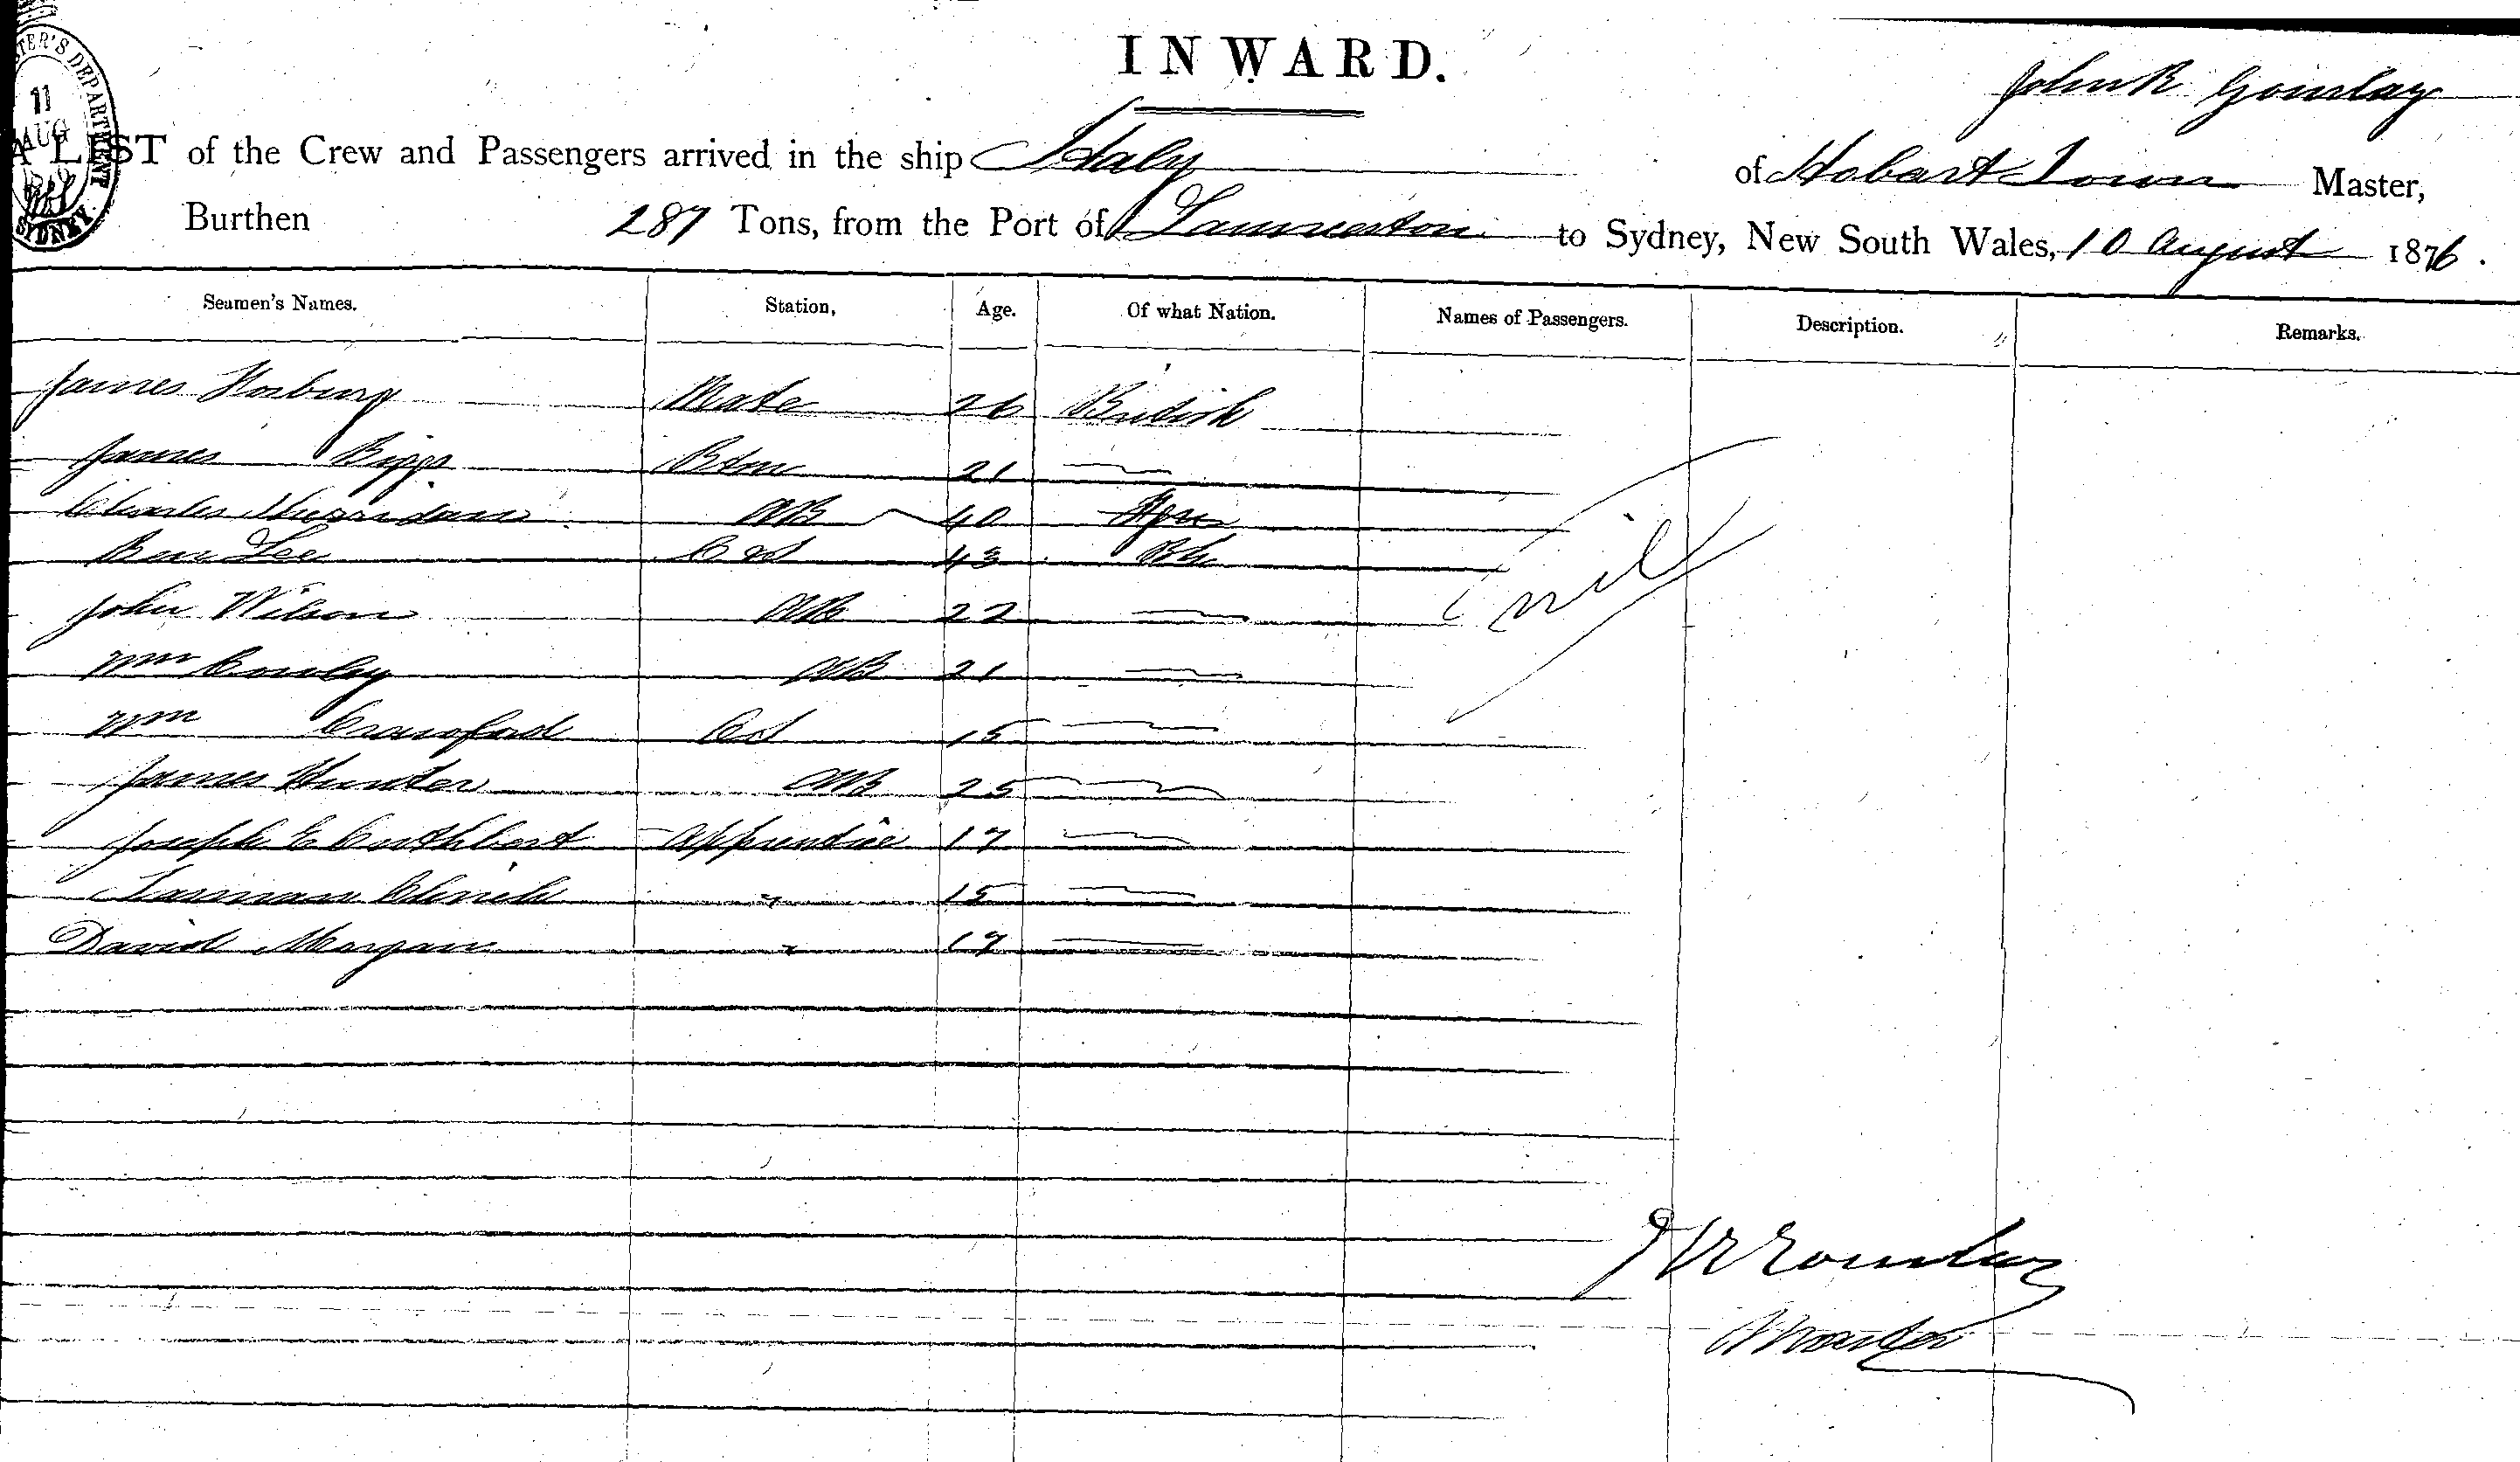 INWARD.
TER'S DEPARTMENT
11
AUG
SYDNEY
John R Gourlay
A LIST of the Crew and Passengers arrived in the ship Italy of Hobart Town Master,
Burthen 287 Tons, from the Port of Launceston to Sydney, New South Wales, 10 August 1876.
Seamen's Names. Station, Age. Of what Nation. Names of Passengers. Description. Remarks.
James Mate 26 British
James Biggs 21
Charles AB 40
Ben Lee 43
John Wilson AB 22
nil
Wm AB 21
Wm Crawford 15
James Hunter AB 25
Joseph E Cuthbert Apprentice 17
Tasman 15
David Morgan 17
J R Gourlay
Master